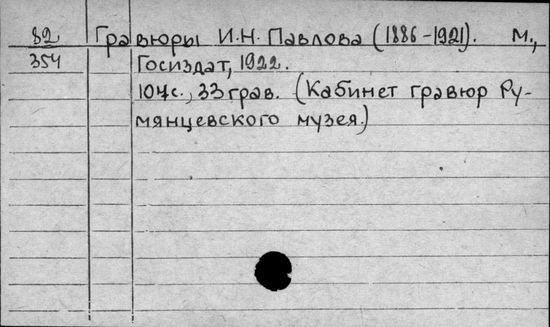 82 Гравюры И.Н. Павлова (1886-1921). М.,
354 Госиздат, 1922.
104с., 33 грав. (Кабинет гравюр Ру-
мянцевского музея.)